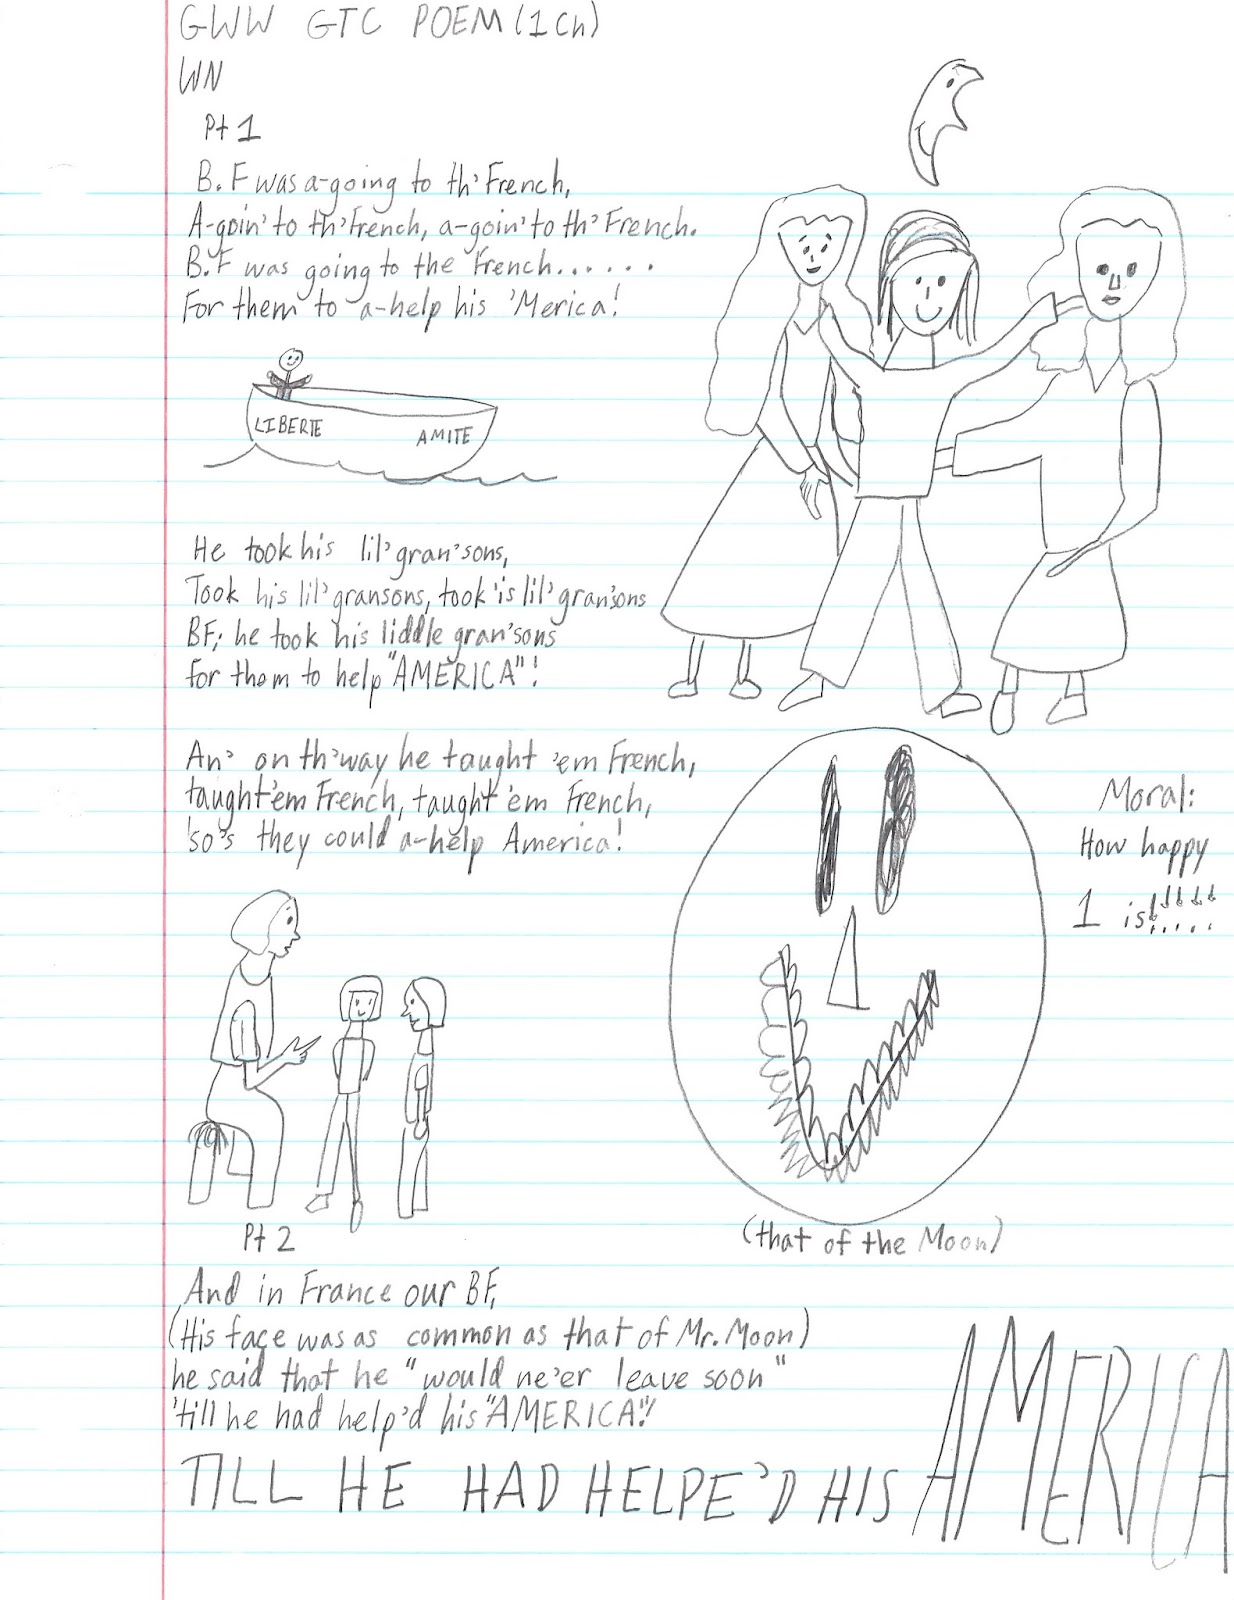 GWW GTC POEM (1 Ch)
WN
Pt 1
B.F was a-going to th' French,
A-goin' to th' French, a-goin' to th' French.
B.F was going to the French......
For them to a-help his 'Merica!
LIBERTE AMITE
He took his lil' gran'sons,
Took his lil' gransons, took 'is lil' gran'sons
BF; he took his liddle gran'sons
for them to help "AMERICA"!
An' on th' way he taught 'em French,
taught 'em French, taught 'em French,
'so's they could a-help America!
Moral:
How happy
1 is!!!!!
(that of the Moon)
Pt 2
And in France our BF,
(His face was as common as that of Mr. Moon)
he said that he "would ne'er leave soon"
'till he had help'd his "AMERICA"!
TILL HE HAD HELPE'D HIS AMERICA